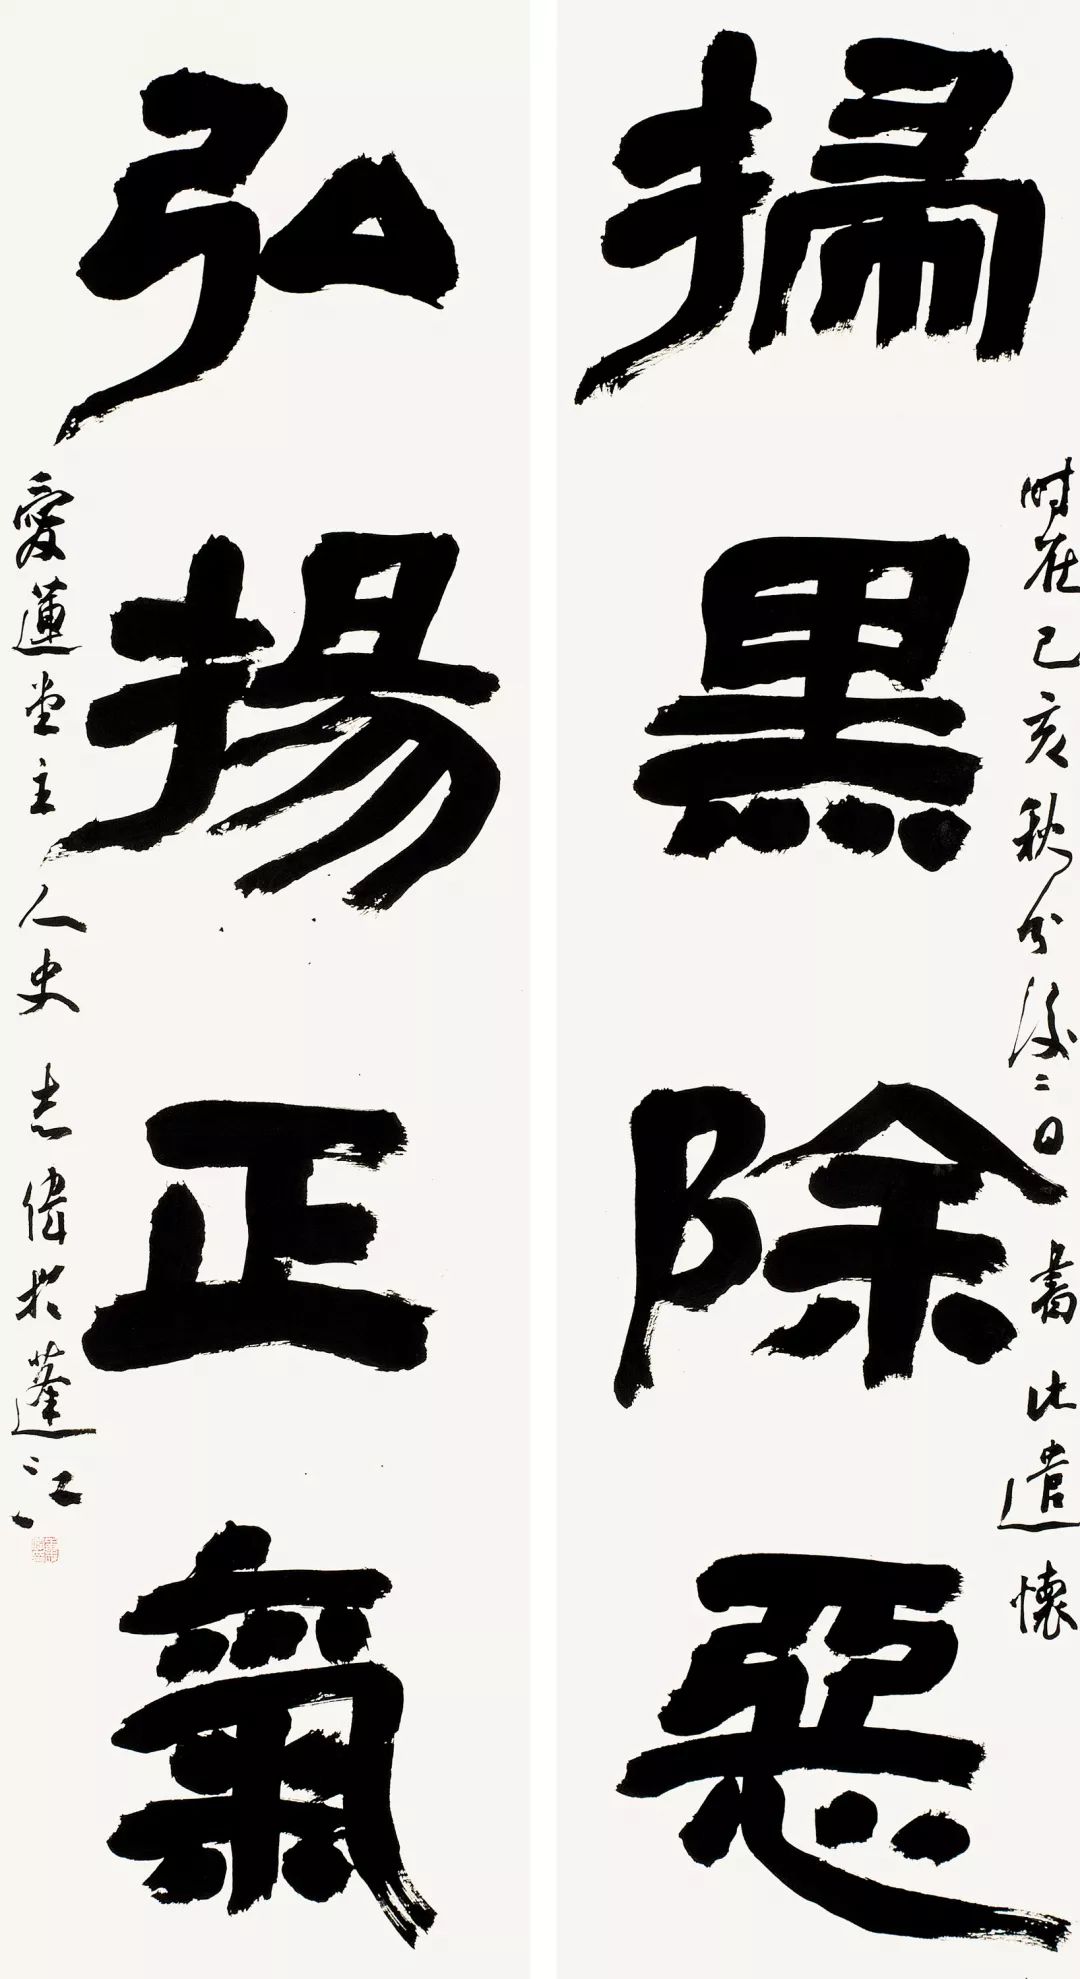 掃黑除惡
時在己亥秋分後二日書此遣懷
弘揚正氣
愛蓮堂主人史志偉於蓬江